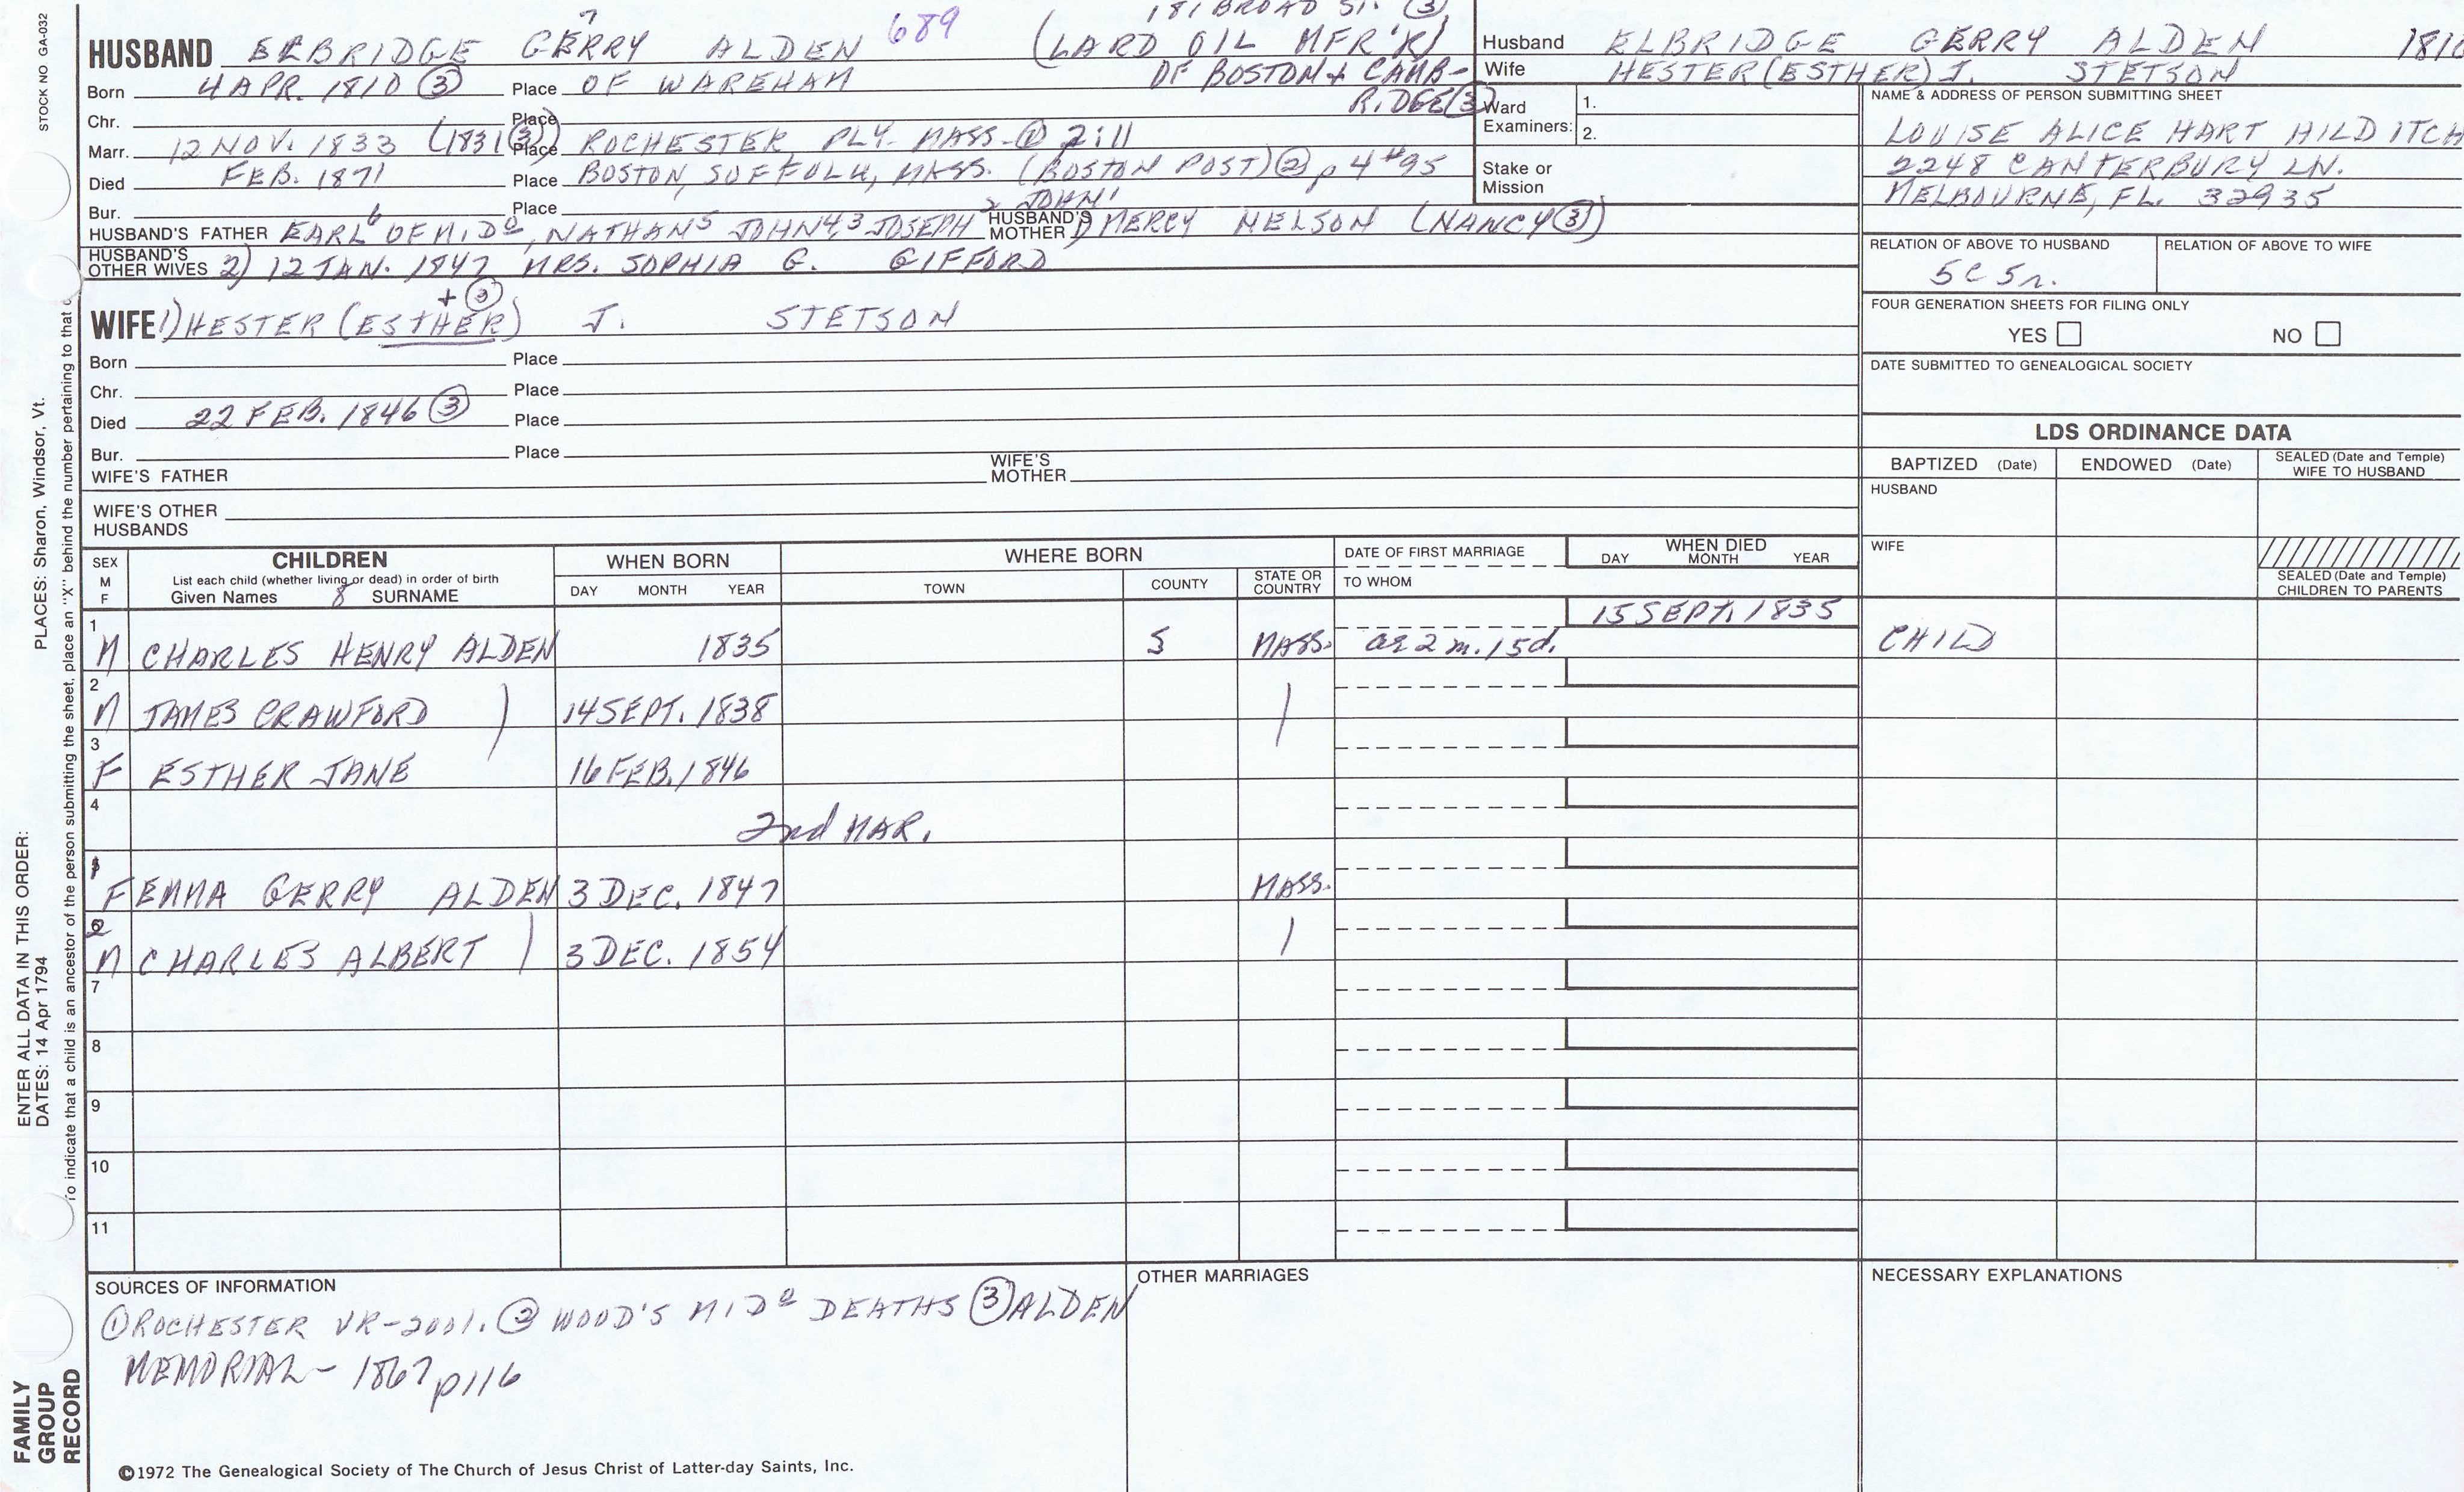 STOCK NO GA-032
181 BROAD ST. (3)
HUSBAND ELBRIDGE GERRY 7 ALDEN 689 (LARD OIL MFR'R)
OF BOSTON + CAMB-
RIDGE (3)
Born 4 APR. 1810 (3) Place OF WAREHAM
Chr. Place
Marr. 12 NOV. 1833 (1831 (3)) Place ROCHESTER, PLY. MASS. (1) 2:11
Died FEB. 1871 Place BOSTON, SUFFOLK, MASS. (BOSTON POST) (2) p 4 #95
Bur. Place
HUSBAND'S FATHER EARL 6 OF MIDO, NATHAN 5 JOHN 4,3 JOSEPH 2 JOHN 1 HUSBAND'S MOTHER 1) MERCY NELSON (NANCY (3))
HUSBAND'S OTHER WIVES 2) 12 JAN. 1847 MRS. SOPHIA G. GIFFORD
+ (3)
WIFE 1) HESTER (ESTHER) J. STETSON
Born Place
Chr. Place
Died 22 FEB. 1846 (3) Place
Bur. Place
WIFE'S FATHER WIFE'S MOTHER
WIFE'S OTHER HUSBANDS
Husband ELBRIDGE GERRY ALDEN 1810
Wife HESTER (ESTHER) J. STETSON
Ward Examiners: 1.
2.
Stake or Mission
NAME & ADDRESS OF PERSON SUBMITTING SHEET
LOUISE ALICE HART HILDITCH
2248 CANTERBURY LN.
MELBOURNE, FL. 32935
RELATION OF ABOVE TO HUSBAND RELATION OF ABOVE TO WIFE
5C 5r.
FOUR GENERATION SHEETS FOR FILING ONLY
YES NO
DATE SUBMITTED TO GENEALOGICAL SOCIETY
LDS ORDINANCE DATA
BAPTIZED (Date) ENDOWED (Date) SEALED (Date and Temple) WIFE TO HUSBAND
HUSBAND
WIFE
SEALED (Date and Temple) CHILDREN TO PARENTS
SEX M F CHILDREN WHEN BORN WHERE BORN DATE OF FIRST MARRIAGE WHEN DIED
List each child (whether living or dead) in order of birth
Given Names 8 SURNAME DAY MONTH YEAR TOWN COUNTY STATE OR COUNTRY TO WHOM DAY MONTH YEAR
1 M CHARLES HENRY ALDEN 1835 S MASS. ae 2 m. 15d. 15 SEPT. 1835 CHILD
2 M JAMES CRAWFORD ) 14 SEPT. 1838
3 F ESTHER JANE 16 FEB. 1846
4 2nd MAR.
1 F EMMA GERRY ALDEN 3 DEC. 1847 MASS.
2 M CHARLES ALBERT ) 3 DEC. 1854
7
8
9
10
11
SOURCES OF INFORMATION
(1) ROCHESTER VR-2001. (2) WOOD'S MIDO DEATHS (3) ALDEN
MEMORIAL - 1867 p116
OTHER MARRIAGES
NECESSARY EXPLANATIONS
©1972 The Genealogical Society of The Church of Jesus Christ of Latter-day Saints, Inc.
FAMILY GROUP RECORD
ENTER ALL DATA IN THIS ORDER:
DATES: 14 Apr 1794
PLACES: Sharon, Windsor, Vt.
To indicate that a child is an ancestor of the person submitting the sheet, place an "X" behind the number pertaining to that